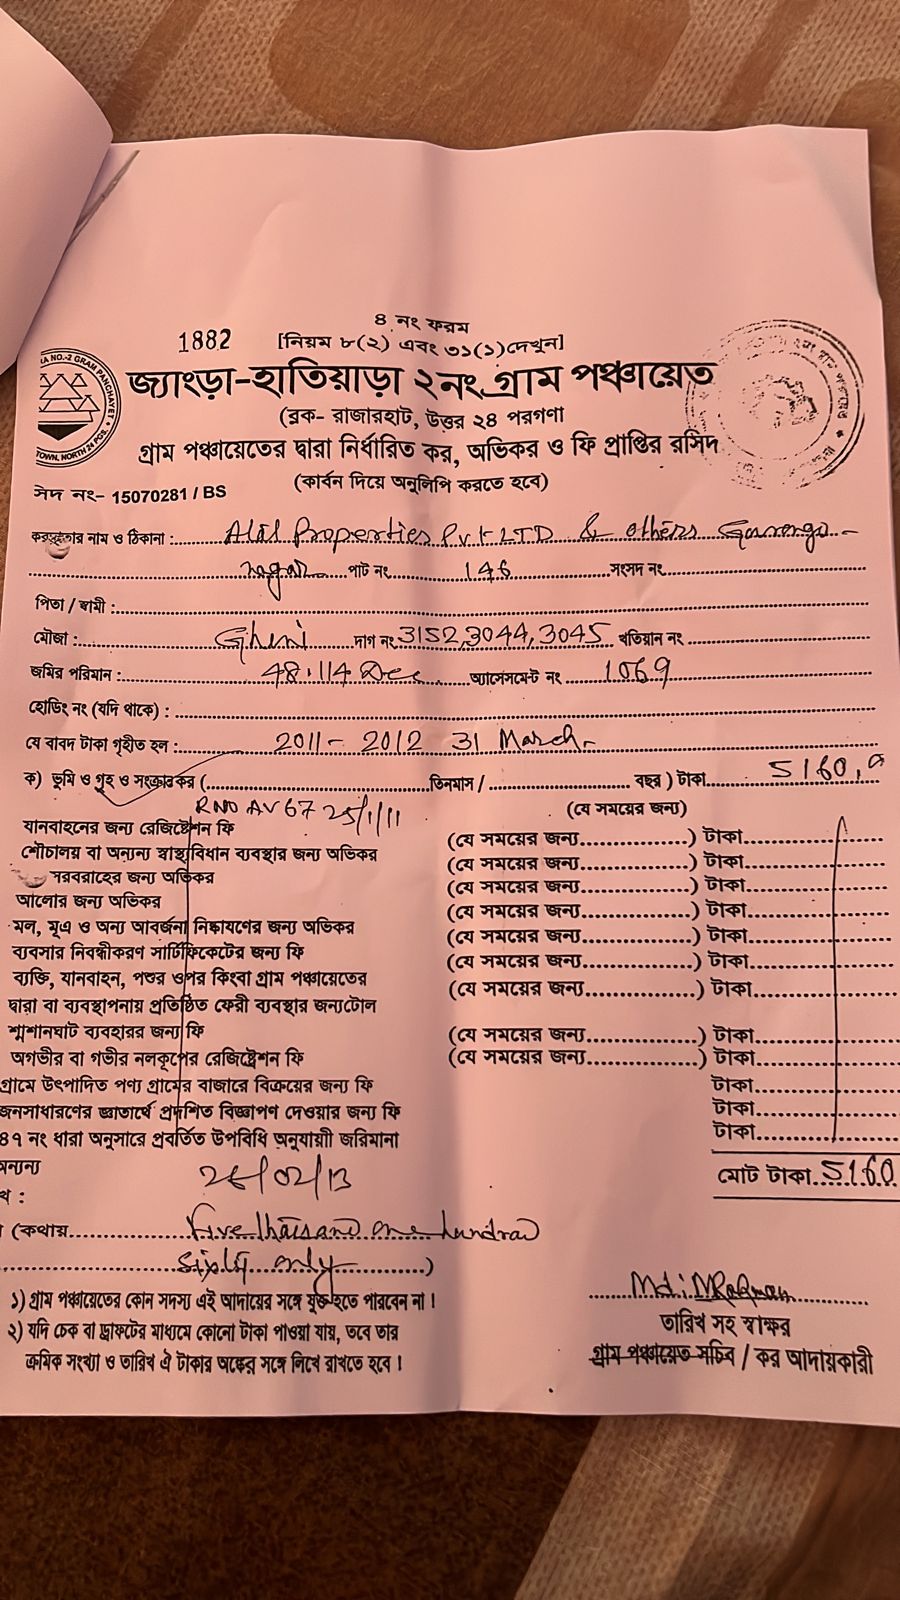 ৪ নং ফরম
1882 [নিয়ম ৮(২) এবং ৩১(১)দেখুন]
জ্যাংড়া-হাতিয়াড়া ২নং গ্রাম পঞ্চায়েত
(ব্লক- রাজারহাট, উত্তর ২৪ পরগণা
গ্রাম পঞ্চায়েতের দ্বারা নির্ধারিত কর, অভিকর ও ফি প্রাপ্তির রসিদ
(কার্বন দিয়ে অনুলিপি করতে হবে)
A NO.-2 GRAM PANCHAYET
TOWN, NORTH 24 PGS.
নং- 15070281 / BS
নাম ও ঠিকানা : Properties Pvt LTD & others
nagar পাট নং 146 সংসদ নং
পিতা / স্বামী :
মৌজা : Ghuni দাগ নং 3152, 3044, 3045 খতিয়ান নং
জমির পরিমান : 48.114 Dec অ্যাসেসমেন্ট নং 1069
হোডিং নং (যদি থাকে) :
যে বাবদ টাকা গৃহীত হল : 2011 - 2012 31 March
ক) ভুমি ও গৃহ ও সংক্রান্তকর ( তিনমাস / বছর ) টাকা 5160
25/1/11 (যে সময়ের জন্য)
যানবাহনের জন্য রেজিষ্ট্রেশন ফি (যে সময়ের জন্য ) টাকা
শৌচালয় বা অন্যন্য স্বাস্থ্যবিধান ব্যবস্থার জন্য অভিকর (যে সময়ের জন্য ) টাকা
সরবরাহের জন্য অভিকর (যে সময়ের জন্য ) টাকা
আলোর জন্য অভিকর (যে সময়ের জন্য ) টাকা
মল, মূএ ও অন্য আবর্জনা নিষ্কাষণের জন্য অভিকর (যে সময়ের জন্য ) টাকা
ব্যবসার নিবন্ধীকরণ সার্টিফিকেটের জন্য ফি (যে সময়ের জন্য ) টাকা
ব্যক্তি, যানবাহন, পশুর ওপর কিংবা গ্রাম পঞ্চায়েতের (যে সময়ের জন্য ) টাকা
দ্বারা বা ব্যবস্থাপনায় প্রতিষ্ঠিত ফেরী ব্যবস্থার জন্যটোল
শ্মাশানঘাট ব্যবহারর জন্য ফি (যে সময়ের জন্য ) টাকা
অগভীর বা গভীর নলকূপের রেজিষ্ট্রেশন ফি (যে সময়ের জন্য ) টাকা
গ্রামে উৎপাদিত পণ্য গ্রামের বাজারে বিক্রয়ের জন্য ফি টাকা
জনসাধারণের জ্ঞাতার্থে প্রদশিত বিজ্ঞাপণ দেওয়ার জন্য ফি টাকা
৪৭ নং ধারা অনুসারে প্রবর্তিত উপবিধি অনুযায়ী জরিমানা টাকা
অন্যন্য 26/02/13 মোট টাকা 5160
(কথায় Five thousand one hundred
sixty only )
১) গ্রাম পঞ্চায়েতের কোন সদস্য এই আদায়ের সঙ্গে যুক্ত হতে পারবেন না।
২) যদি চেক বা ড্রাফটের মাধ্যমে কোনো টাকা পাওয়া যায়, তবে তার
ক্রমিক সংখ্যা ও তারিখ ঐ টাকার অঙ্কের সঙ্গে লিখে রাখতে হবে।
তারিখ সহ স্বাক্ষর
গ্রাম পঞ্চায়েত সচিব / কর আদায়কারী